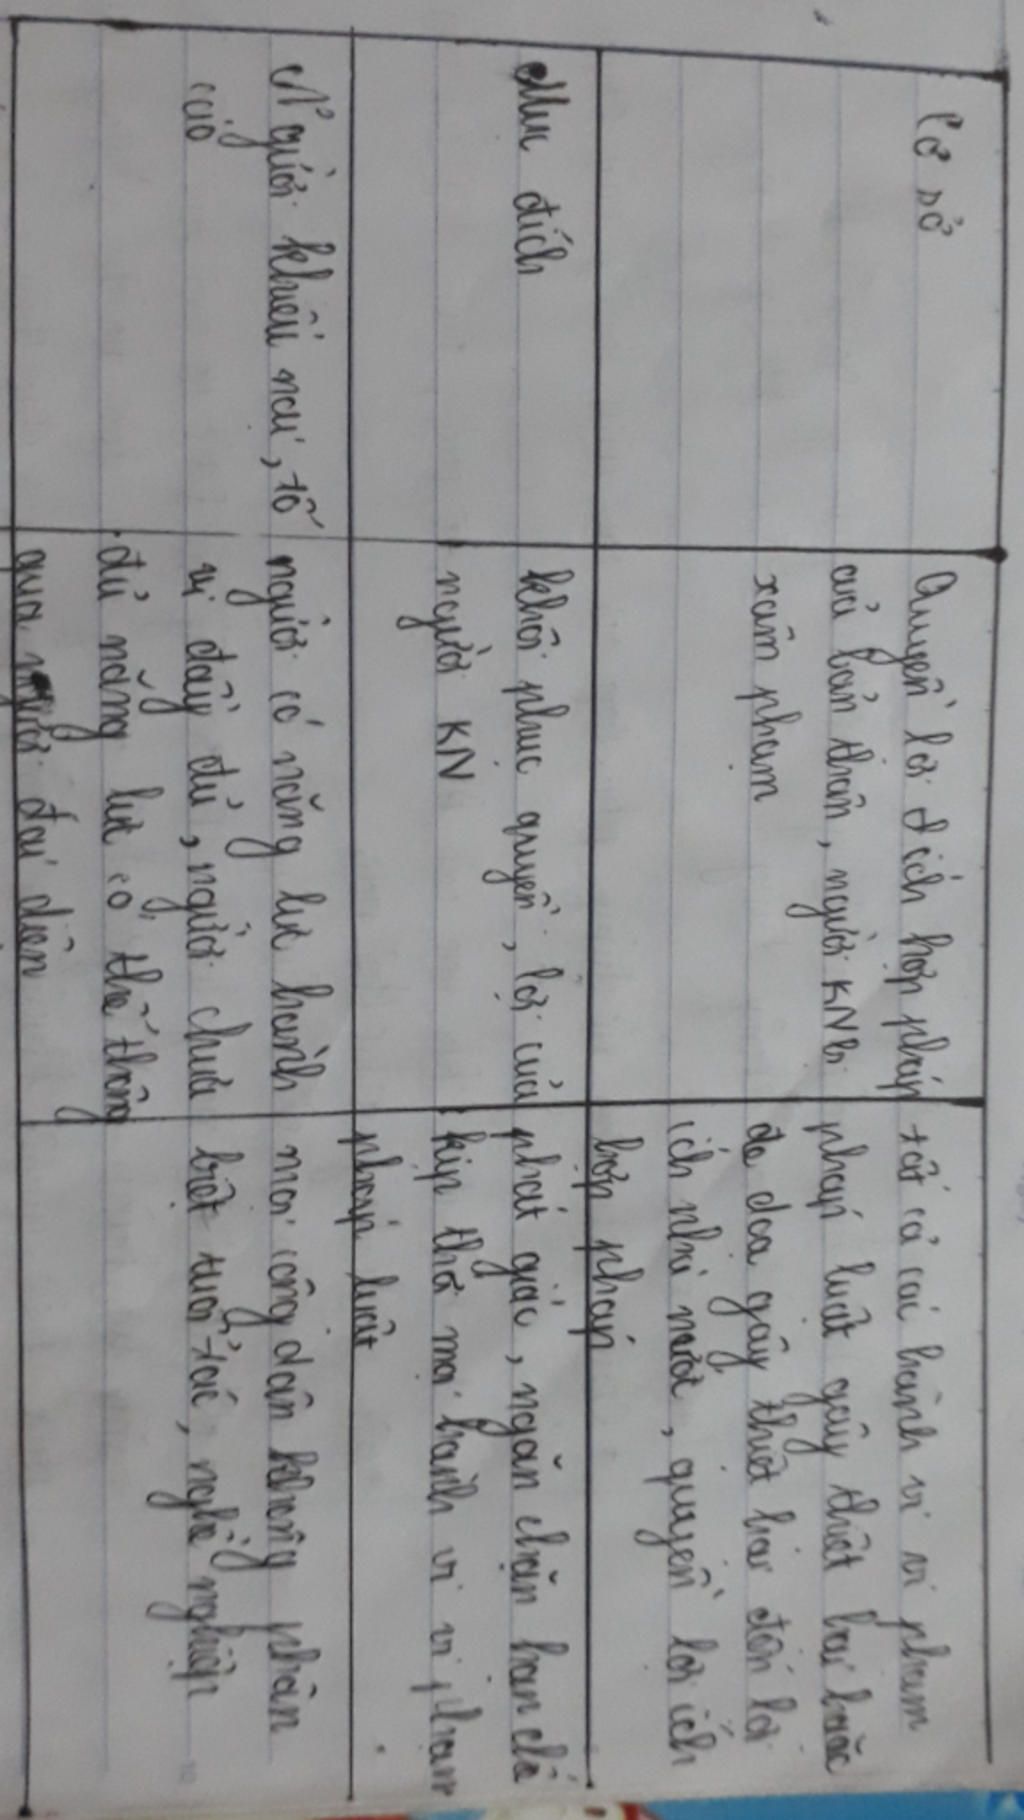 Cơ sở
Quyền lợi ích hợp pháp
của bản thân, người KN bị
xâm phạm
tất cả các hành vi vi phạm
pháp luật gây thiệt hại hoặc
đe doạ gây thiệt hại đến lợi
ích nhà nước, quyền lợi ích
hợp pháp
Mục đích
khôi phục quyền, lợi của
người KN
phát giác, ngăn chặn hạn chế
kịp thời mọi hành vi vi phạm
pháp luật
Người khiếu nại, tố
cáo
người có năng lực hành
vi đầy đủ, người chưa
đủ năng lực có thể thông
qua người đại diện
mọi công dân không phân
biệt tuổi tác, nghề nghiệp